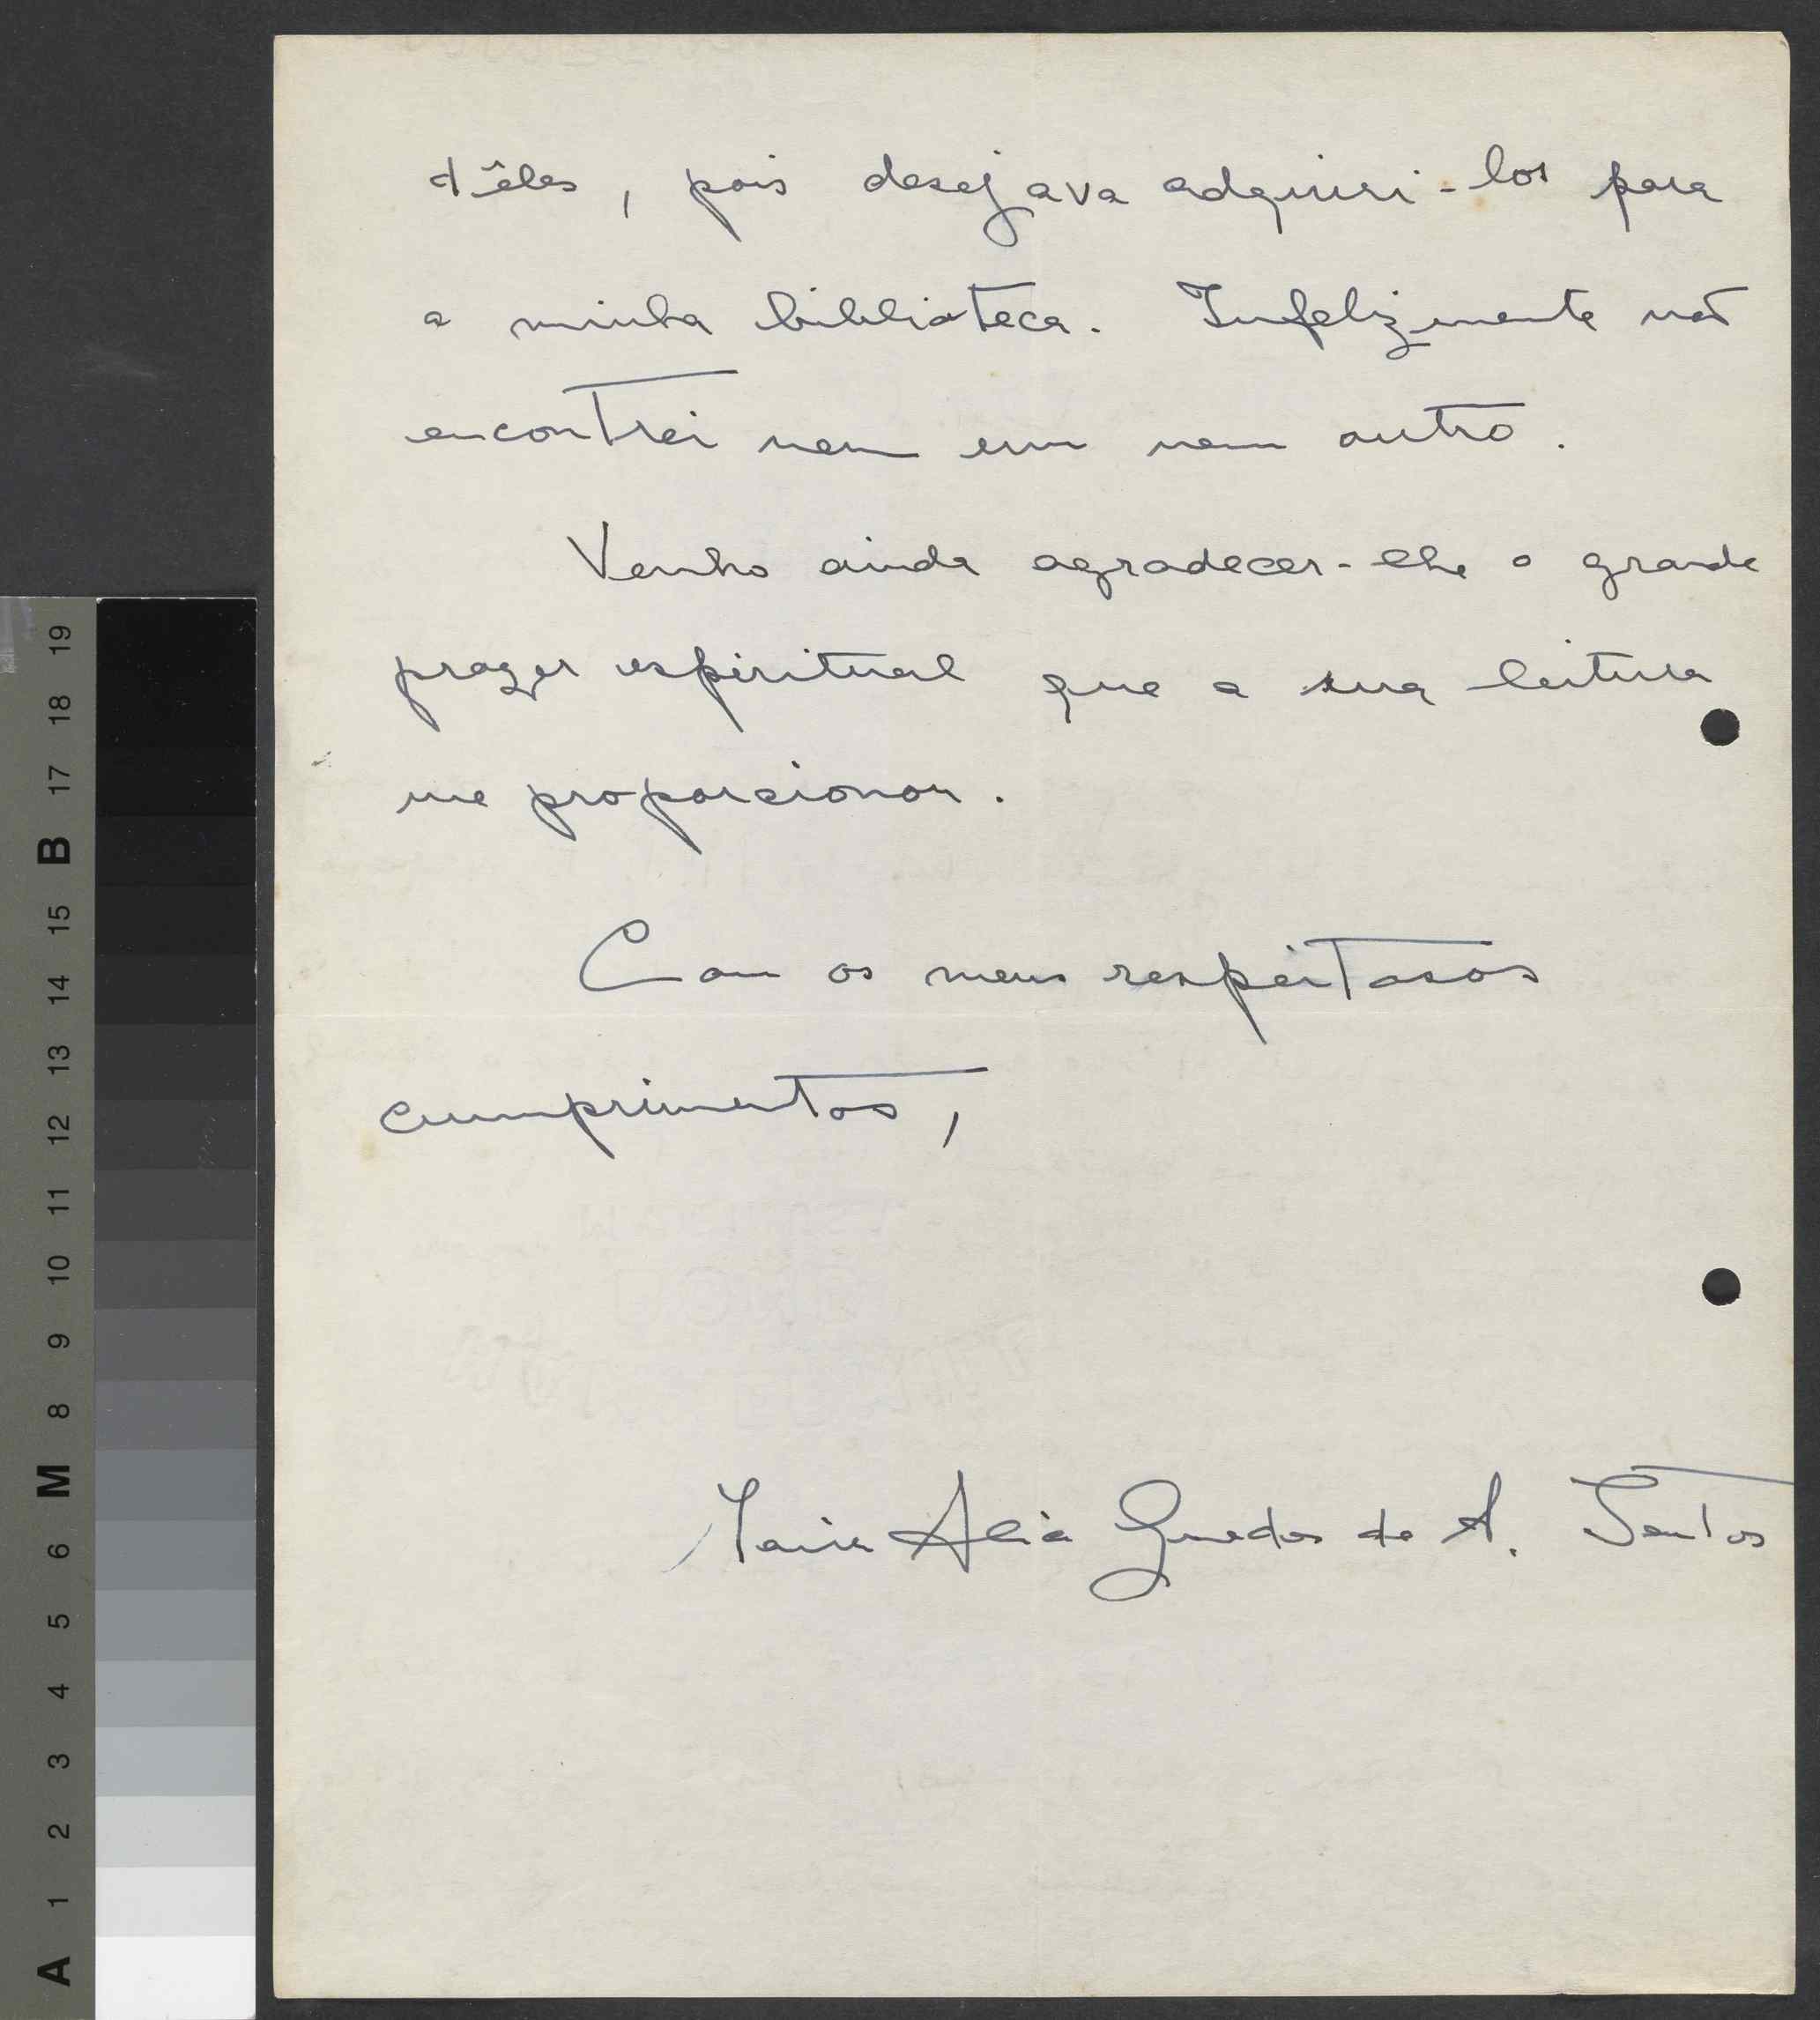 dêles, pois desejava adquiri-los para
a minha biblioteca. Infelizmente não
encontrei nem um nem outro.
Venho ainda agradecer-lhe o grande
prazer espiritual que a sua leitura
me proporcionou.
Com os meus respeitosos
cumprimentos,
Maria Guedes de A. Santos
A 1 2 3 4 5 6 M 8 9 10 11 12 13 14 15 B 17 18 19